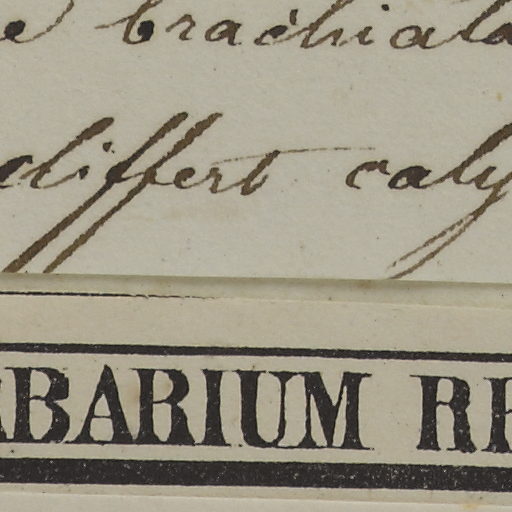 e brachiata
differt caly
RBARIUM RE